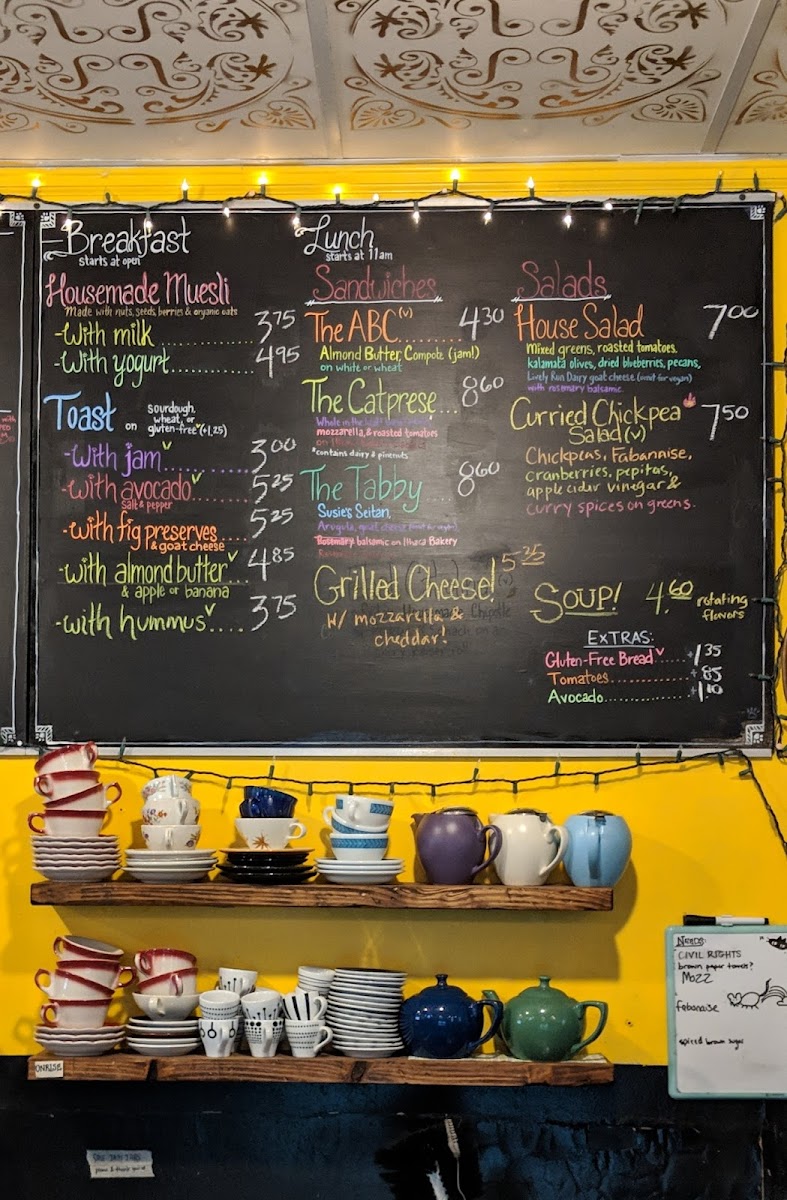 Breakfast
starts at open
Housemade Muesli
Made with nuts, seeds, berries & organic oats
-With milk ............ 3.75
-With yogurt............ 4.95
Toast on sourdough,
wheat, or
gluten-free (+1.25)
-With jam v ............ 3.00
-With avocado v ........ 5.25
salt & pepper
-with fig preserves .... 5.25
& goat cheese
-with almond butter v... 4.85
& apple or banana
-with hummus v.... 3.75
Lunch
starts at 11am
Sandwiches
The ABC (v)........ 4.30
Almond Butter, Compote (jam!)
on white or wheat
The Catprese... 8.60
mozzarella, & roasted tomatoes
*contains dairy & pinenuts
The Tabby...... 8.60
Susie's Seitan,
Arugula, goat cheese (omit for vegan)
Rosemary balsamic on Ithaca Bakery
Grilled Cheese! 5.25
w/ mozzarella &
cheddar!
Salads
House Salad 7.00
Mixed greens, roasted tomatoes,
kalamata olives, dried blueberries, pecans,
Lively Run Dairy goat cheese (omit for vegan)
with rosemary balsamic
Curried Chickpea 7.50
Salad (v)
Chickpeas, Fabannise,
cranberries, pepitas,
apple cider vinegar &
curry spices on greens.
Soup! 4.60 rotating
flavors
EXTRAS:
Gluten-Free Bread v..... +1.35
Tomatoes............ +.85
Avocado............. +1.10
Needs:
CIVIL RIGHTS
brown paper towels?
Mozz
fabanaise
spiced brown sugar